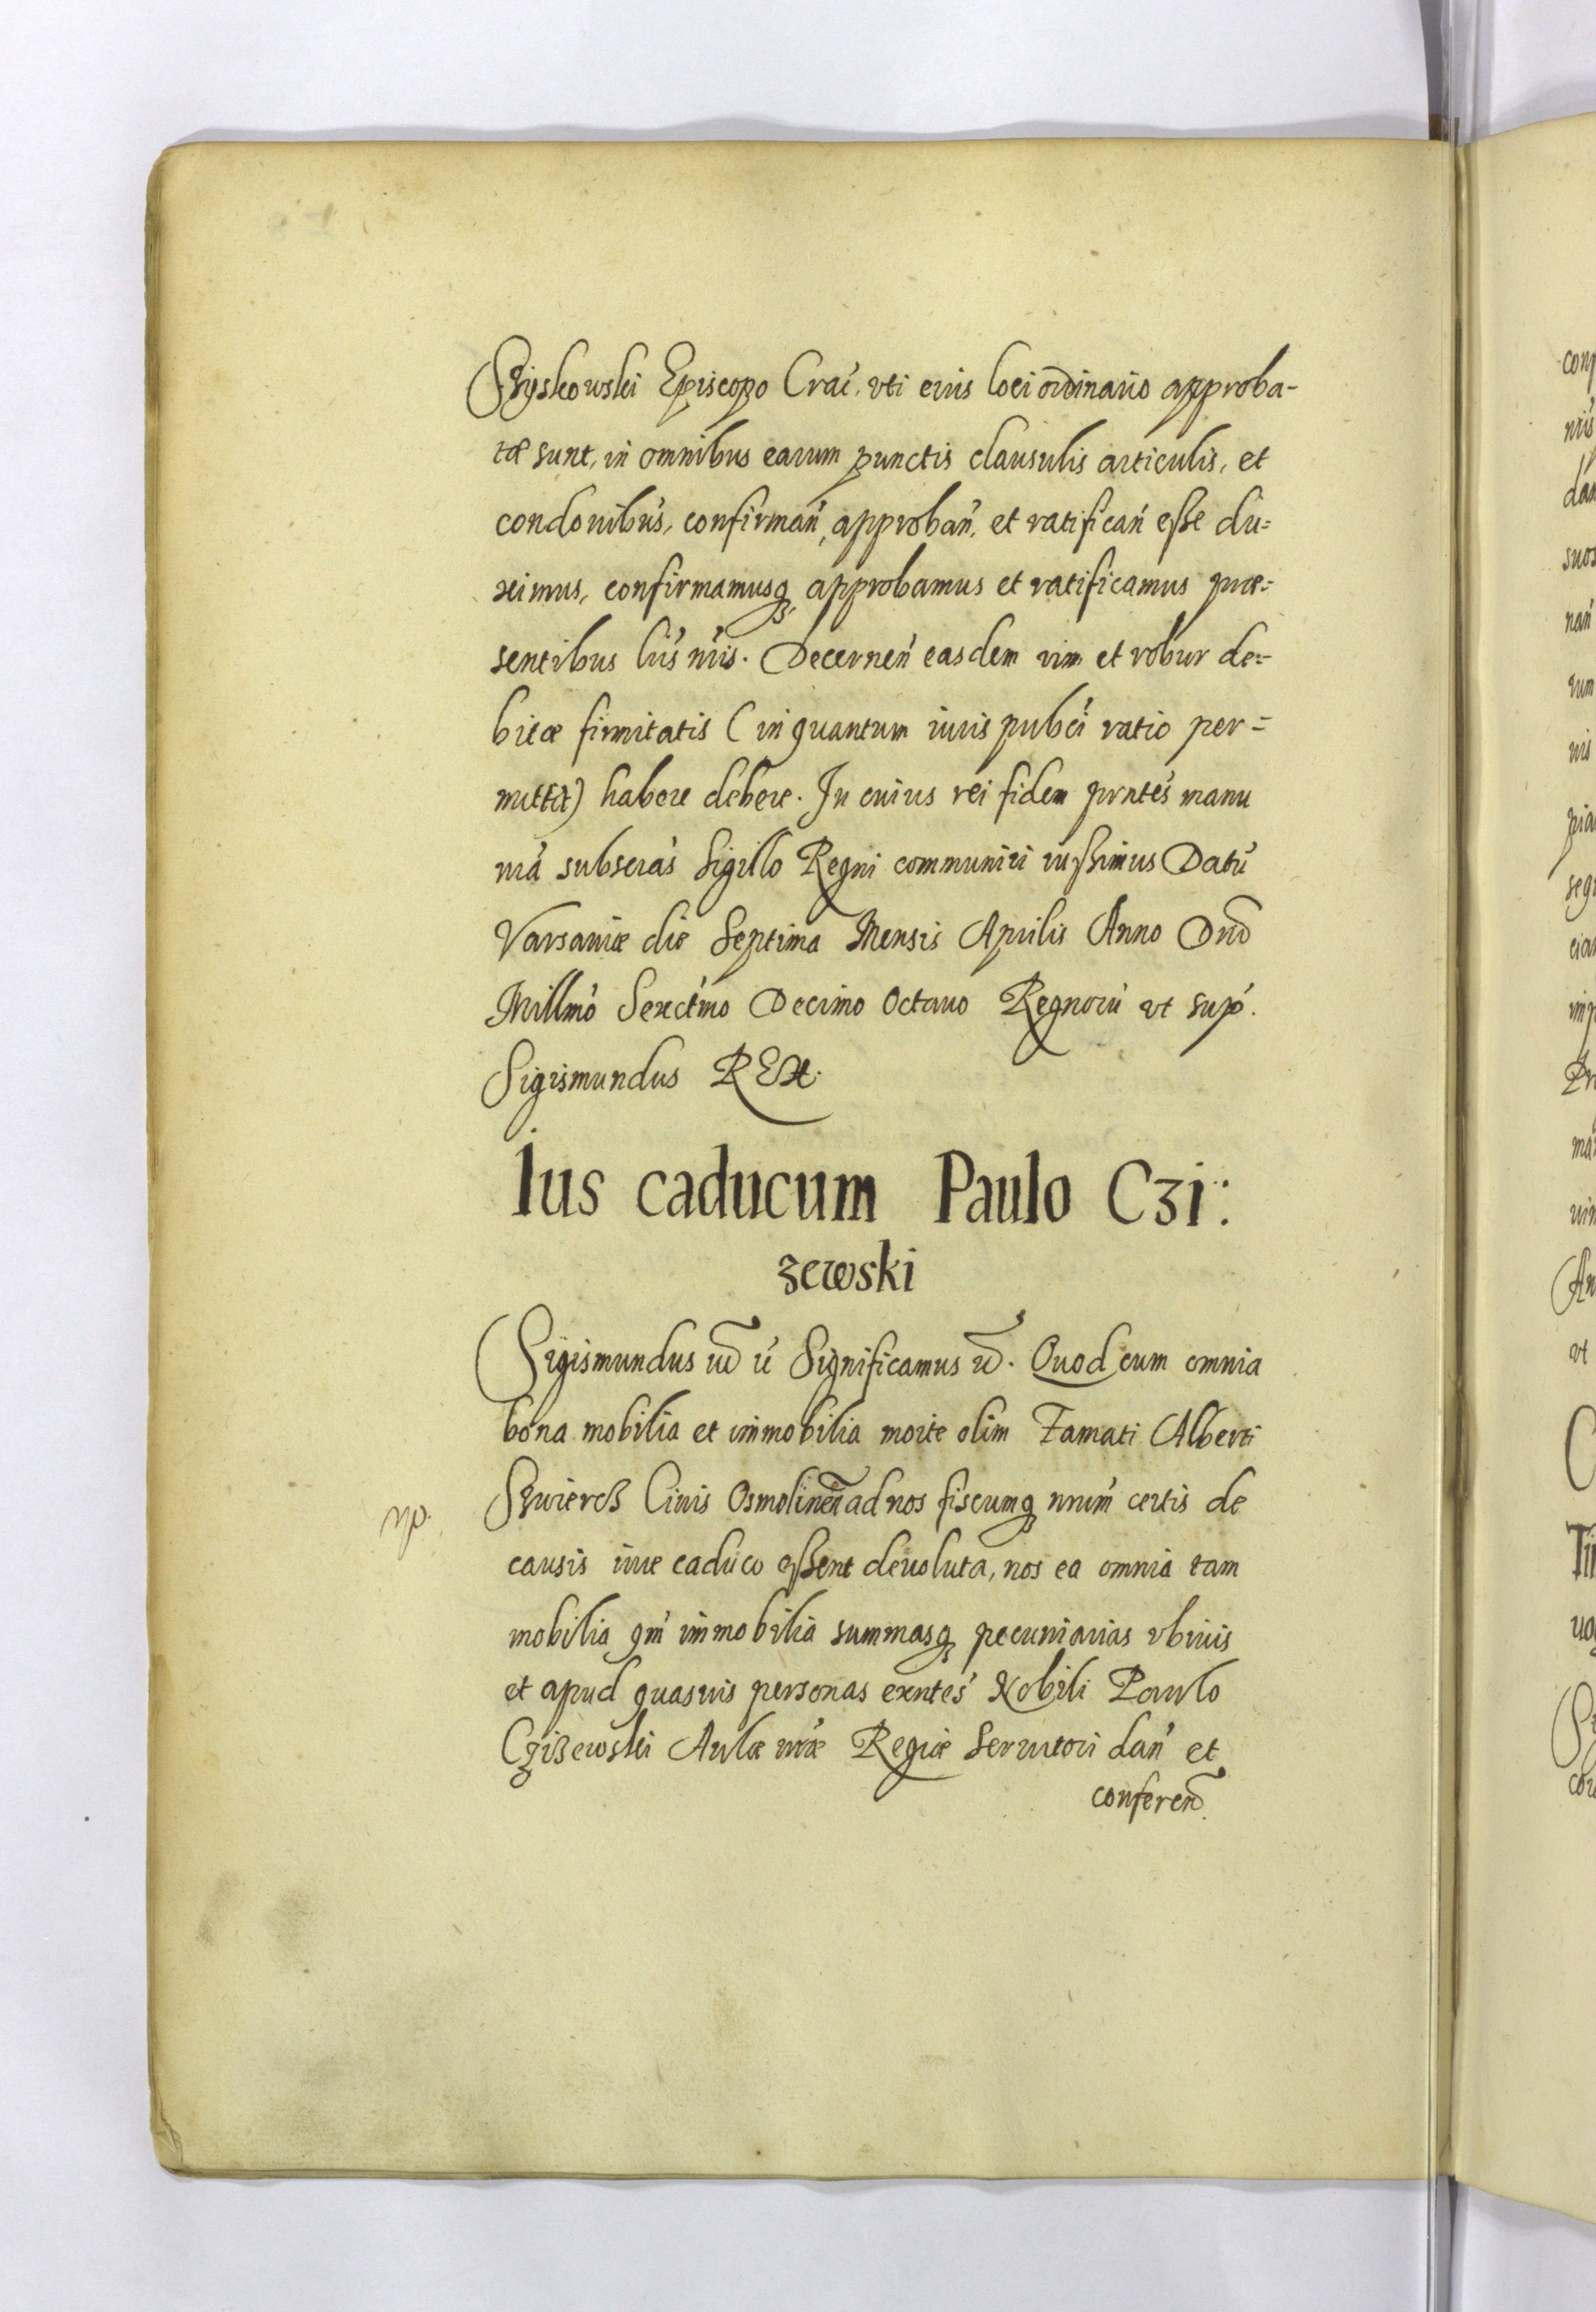 Szyskowski Episcopo Crać. vti eius loci ordinario approba-
tæ sunt, in omnibus earum punctis clausulis articulis, et
condonibus, confirmań, approbań, et ratificań eße du=
ximus, confirmamusq, approbamus et ratificamus præ=
sentibus lris nris. Decerneń easdem vim et robur de=
bitæ firmitatis (in quantum iuris pubci ratio per=
mittit) habere debere. In cuius rei fidem prntes manu
nra subscras Sigillo Regni communiri iußimus Datu
Varsaviæ die Septima Mensis Aprilis Anno Dnd
Millmo Sexctmo Decimo Octauo Regnoru vt supr.
Sigismundus REX.
Ius caducum Paulo Czi:
zewski
Sigismundus Significamus Quod cum omnia
bona mobilia et immobilia morte olim Famati Alberti
Szwiercz Ciuis Osmolineń ad nos fiscumq nrum certis de
causis iure caduco eßent deuoluta, nos ea omnia tam
mobilia qm immobilia summasq pecuniarias vbiuis
et apud quasuis personas exntes Nobili Paulo
Cziżewski Aulæ nræ Regiæ Seruitori dań et
conferend.